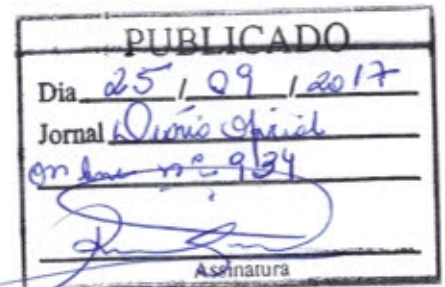 PUBLICADO
Dia 25 / 09 / 2017
Jornal Diário Oficial
on line nº 934
Assinatura